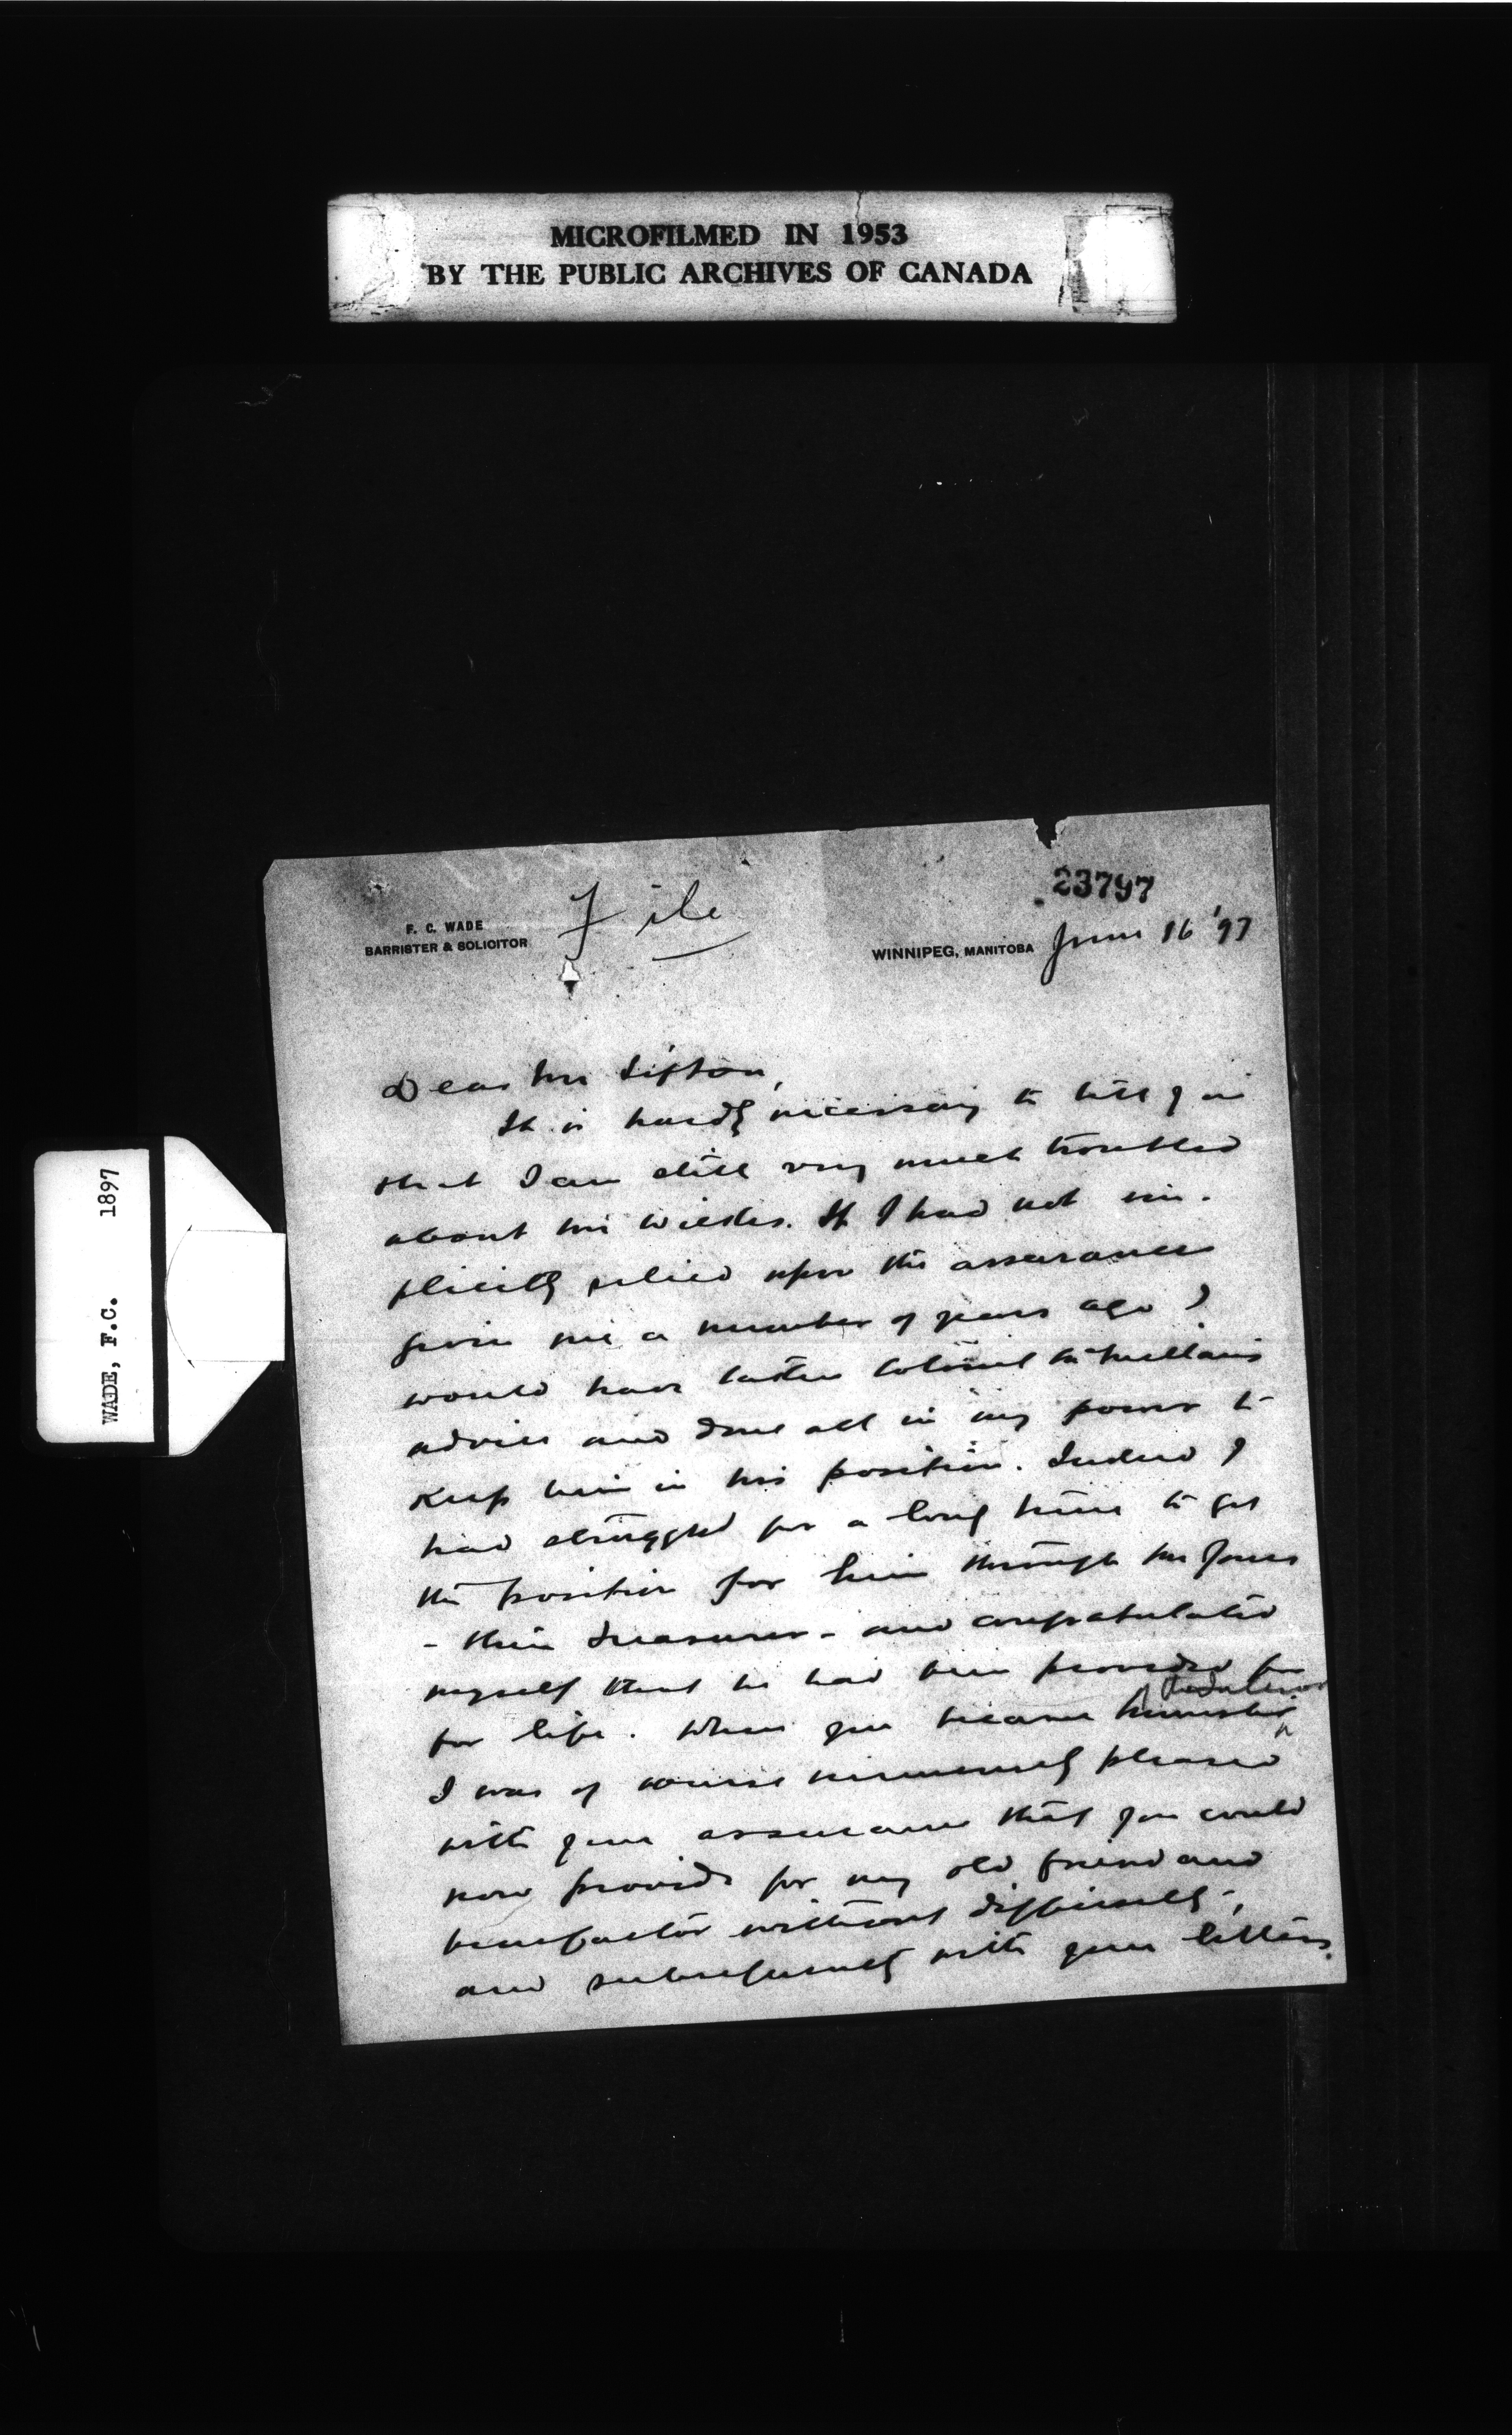 MICROFILMED IN 1953
BY THE PUBLIC ARCHIVES OF CANADA
WADE, F.C. 1897
23797
File
F. C. WADE
BARRISTER & SOLICITOR
WINNIPEG, MANITOBA June 16 '97
Dear Mr Sifton,
It is hardly necessary to tell you
that I am still very much troubled
about Mr. If I had not im-
plicitly relied upon the assurances
given me a number of years ago I
would have taken Colonel McMillan's
advice and done all in my power to
keep him in his position. Indeed I
had struggled for a long time to get
the position for him through Mr Jones
- then Treasurer - and congratulated
myself that he had been provided for
for life. When you became Minister
I was of course immensely pleased
with your assurance that you could
now provide for my old friend and
benefactor without difficulty,
and subsequently with your letters.